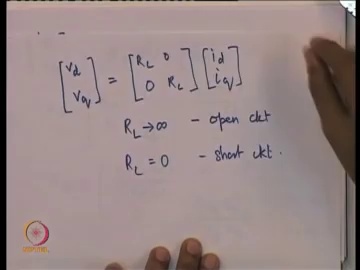 [vd vq] = [RL 0 0 RL] [id iq]
RL → ∞ - open ckt
RL = 0 - short ckt.
NPTEL